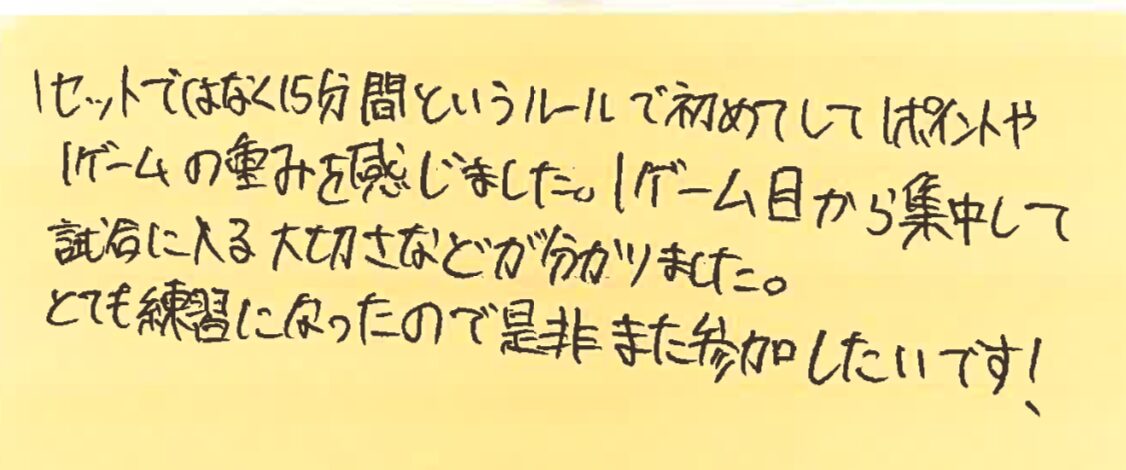 1セットではなく15分間というルールで初めてして1ポイントや
1ゲームの重みを感じました。1ゲーム目から集中して
試合に入る大切さなどが分かりました。
とても練習になったので是非また参加したいです!